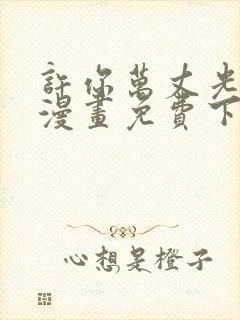 許你萬丈光
漫畫免費下
心想是橙子